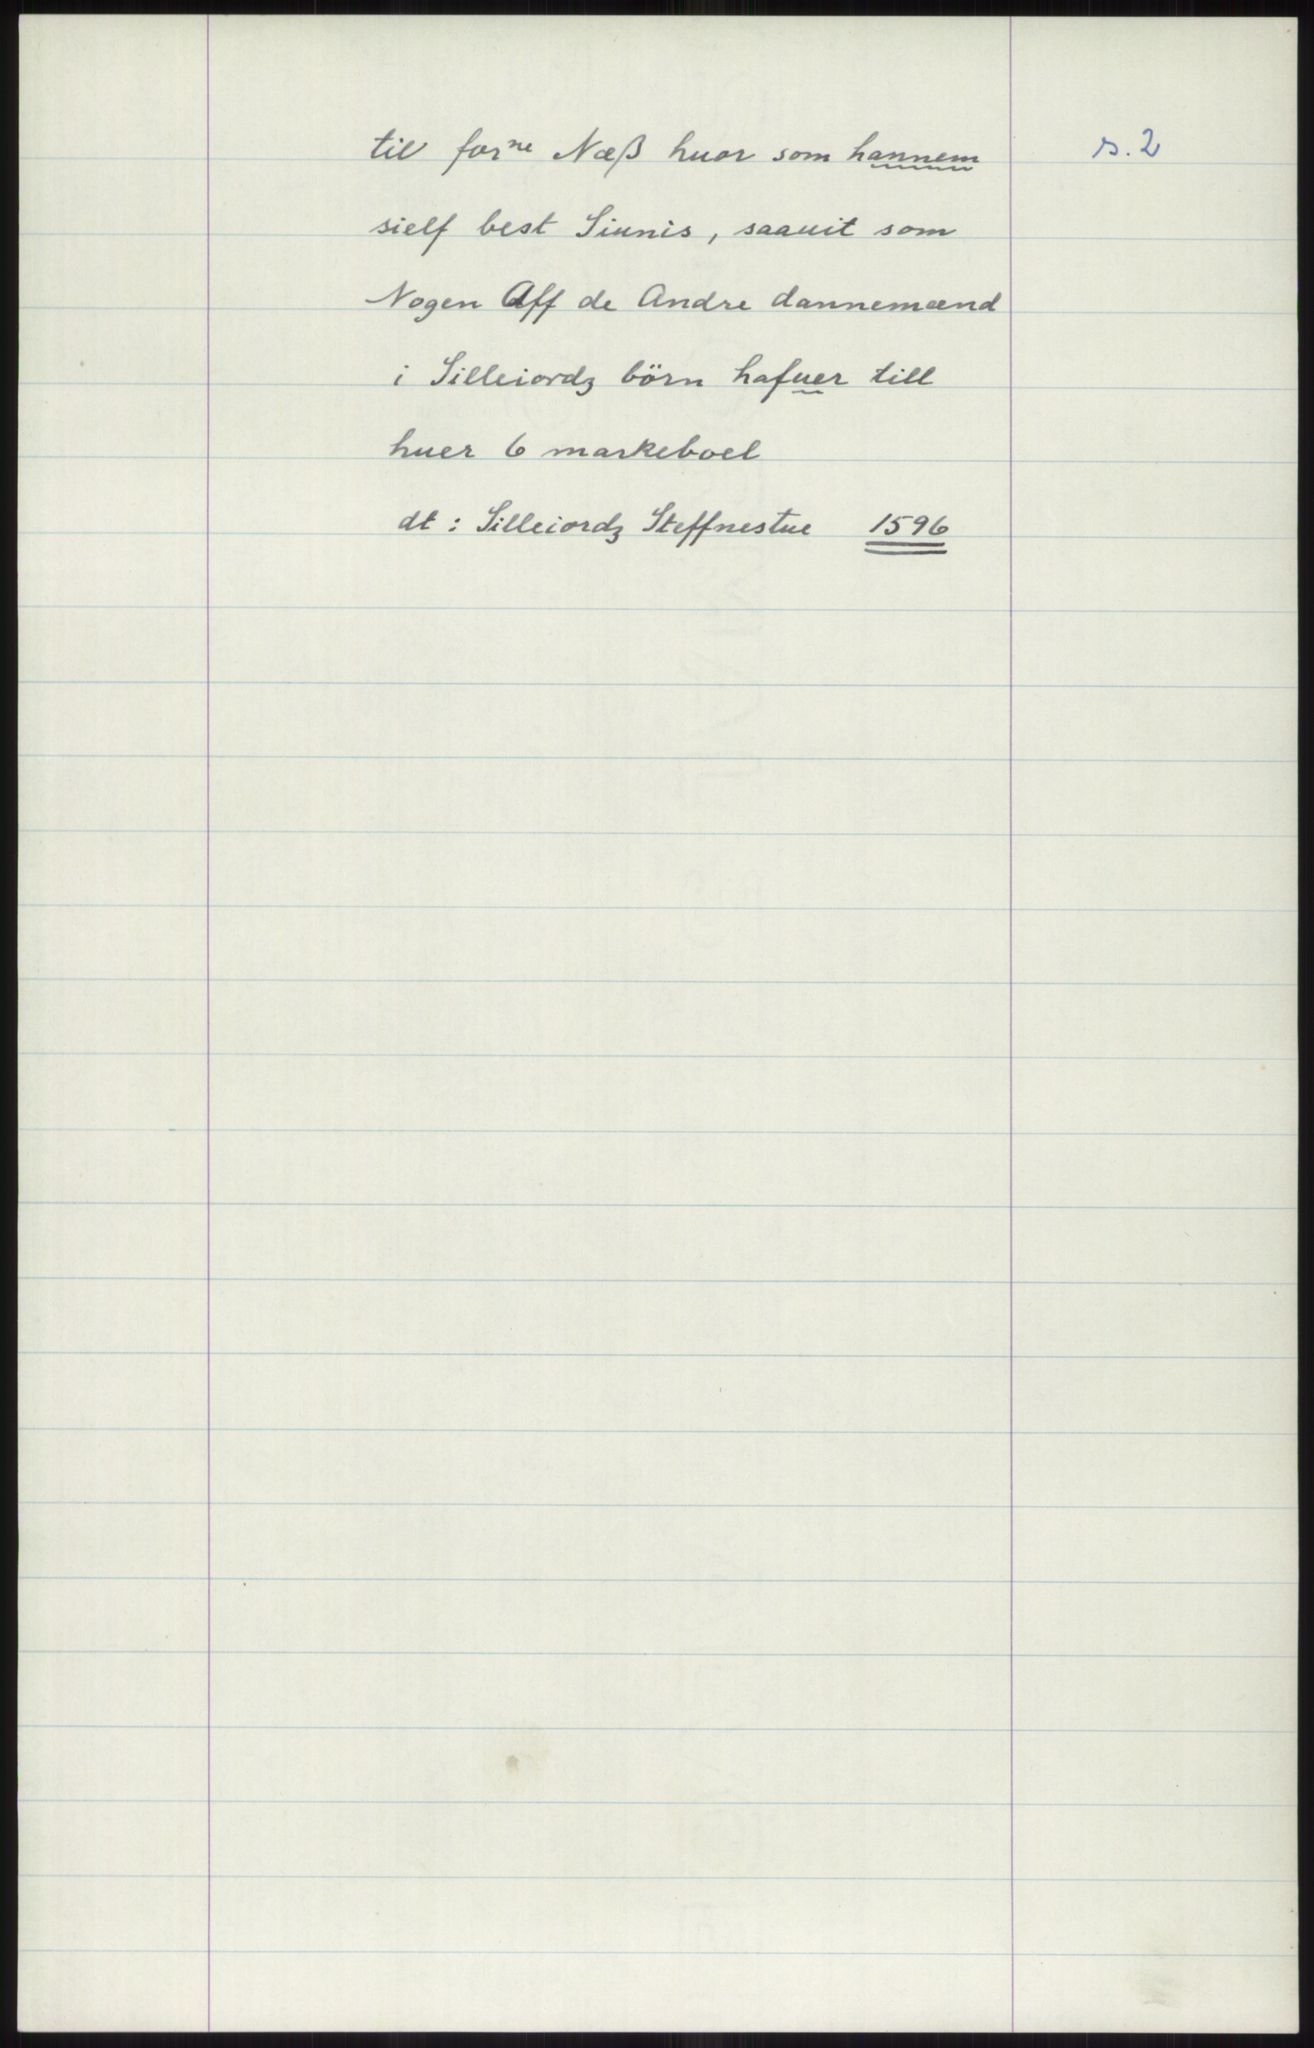 til forne Næß huor som hannem s. 2
sielf best Siunis, saauit som
Nogen Aff de Andre dannemænd
i Silleiordz börn hafuer till
huer 6 markeboel
dt: Silleiordz Steffnestue 1596